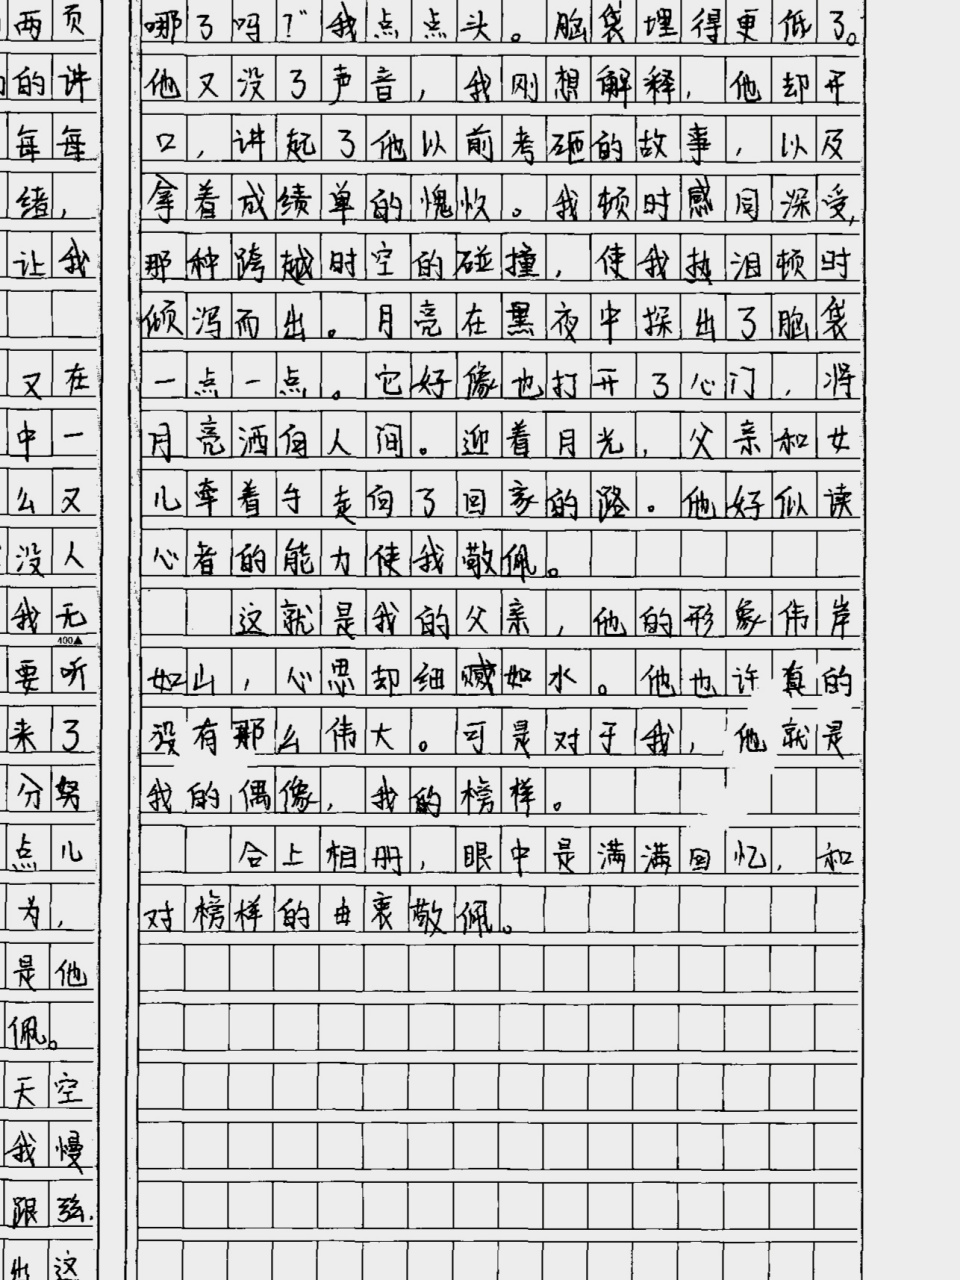 两页
的讲
每每
绪，
让我
又在
中一
么又
没人
我无
400▲
要听
来了
分努
点儿
为，
是他
佩。
天空
我慢
跟
这
哪了吗？”我点点头。脑袋埋得更低了。
他又没了声音，我刚想解释，他却开
口，讲起了他以前考砸的故事，以及
拿着成绩单的愧疚。我顿时感同深受，
那种跨越时空的碰撞，使我热泪顿时
倾泻而出。月亮在黑夜中探出了脑袋
一点一点。它好像也打开了心门，将
月亮洒向人间。迎着月光，父亲和女
儿牵着手走向了回家的路。他好似读
心者的能力使我敬佩。
这就是我的父亲，他的形象伟岸
如山，心思却细腻如水。他也许真的
没有那么伟大。可是对于我，他就是
我的偶像，我的榜样。
合上相册，眼中是满满回忆，和
对榜样的由衷敬佩。